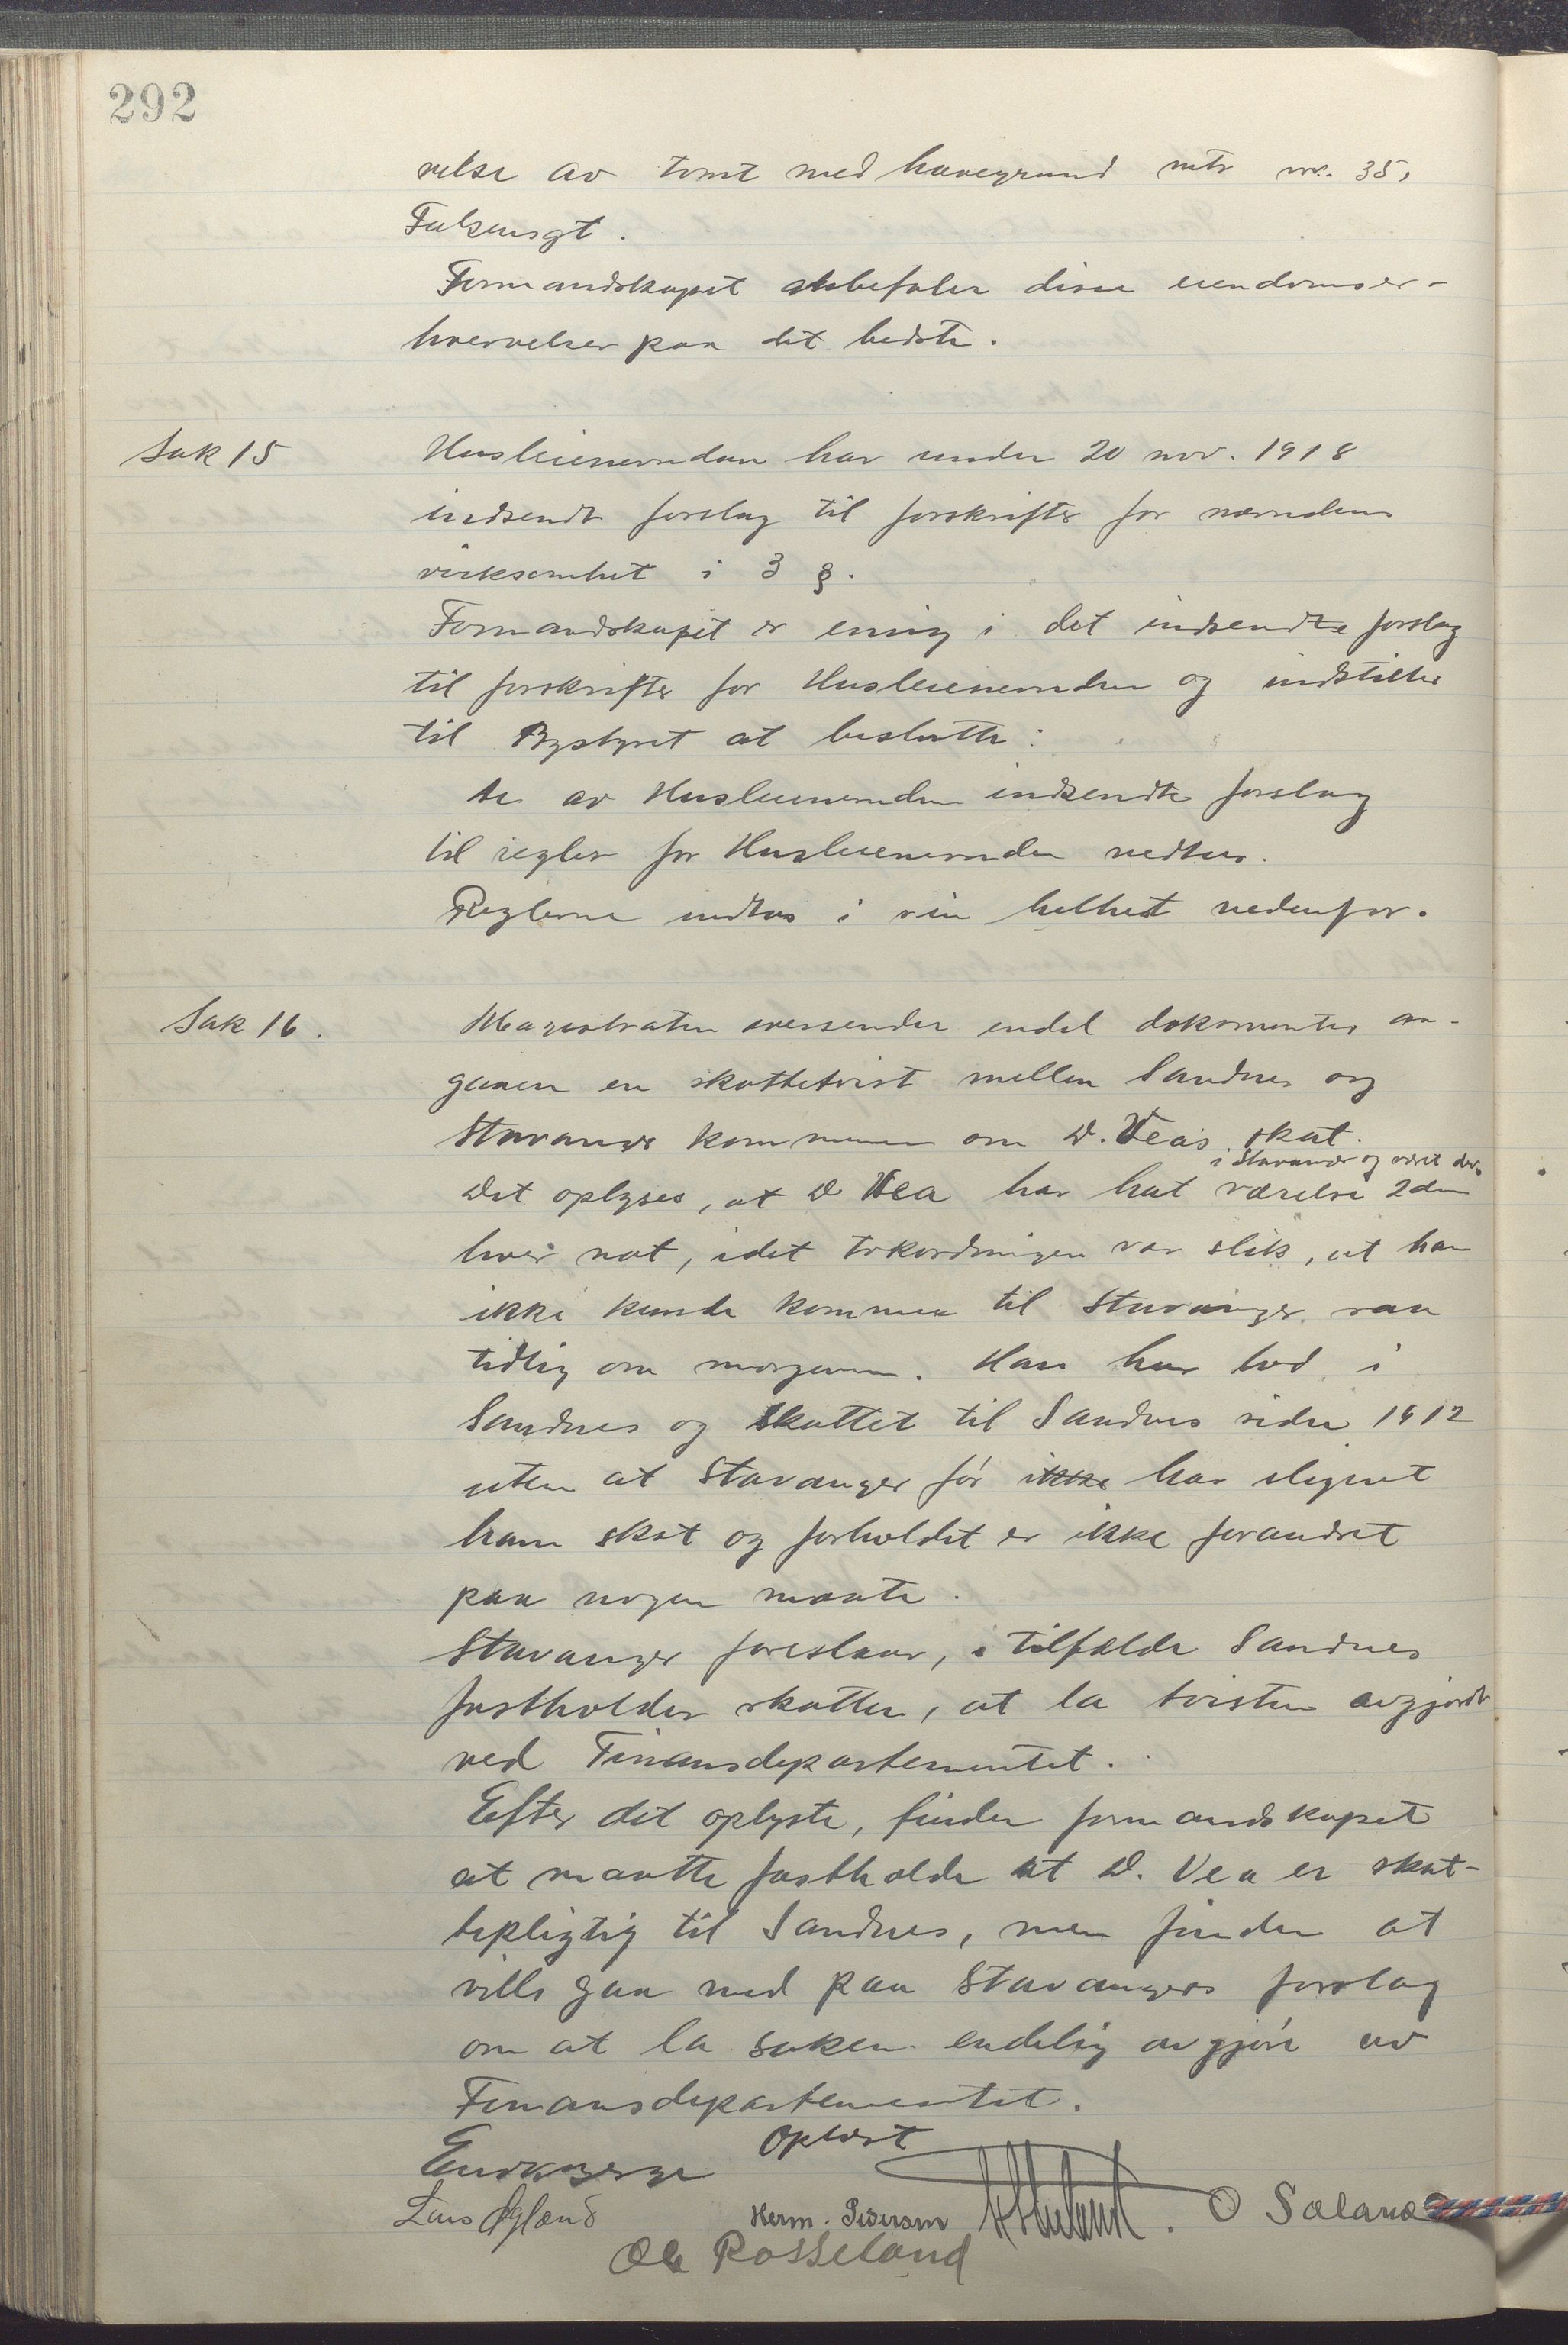 292
velse av tomt med havegrund mtr nr. 35,
Falsensgt.
Formandskapet anbefaler disse eiendomser-
hvervelser paa det bedste.
Sak 15
Husleienevnden har under 20 nov. 1918
indsendt forslag til forskrifter for nævndens
virksomhet i 3 §.
Formandskapet er enig i det indsendte forslag
til forskrifter for Husleienevnden og indstiller
til Bystyret at beslutte:
de av Husleienevnden indsendte forslag
til regler for Husleienevnden vedtas.
Reglerne indtas i sin helhet nedenfor.
Sak 16.
Magistraten oversender endel dokumenter an-
gaaen en skattetvist mellem Sandnes og
Stavanger kommune om D. Vea's skat.
i Stavanger og været der
Det oplyses, at D Vea har hat værelse 2den
hver nat, idet tokordningen var slik, at han
ikke kunde komme til Stavanger saa
tidlig om morgenen. Han har bod i
Sandnes og skattet til Sandnes siden 1912
uten at Stavanger før ikke har ilignet
ham skat og forholdet er ikke forandret
paa nogen maate.
Stavanger foreslaar, i tilfælde Sandnes
fastholder skatten, at la tvisten avgjort
ved Finansdepartementet.
Efter det oplyste, finder formandskapet
at maatte fastholde at D. Vea er skat-
tepligtig til Sandnes, men finder at
ville gaa med paa Stavangers forslag
om at la saken endelig avgjøre av
Finansdepartementet.
Oplæst
Lars Øgland
Herm. Pedersen
O Sæland
Ole Rosseland